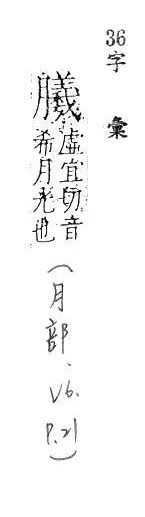 36字彙
虛宜切音
希月光也
(月部. V6. P.21)